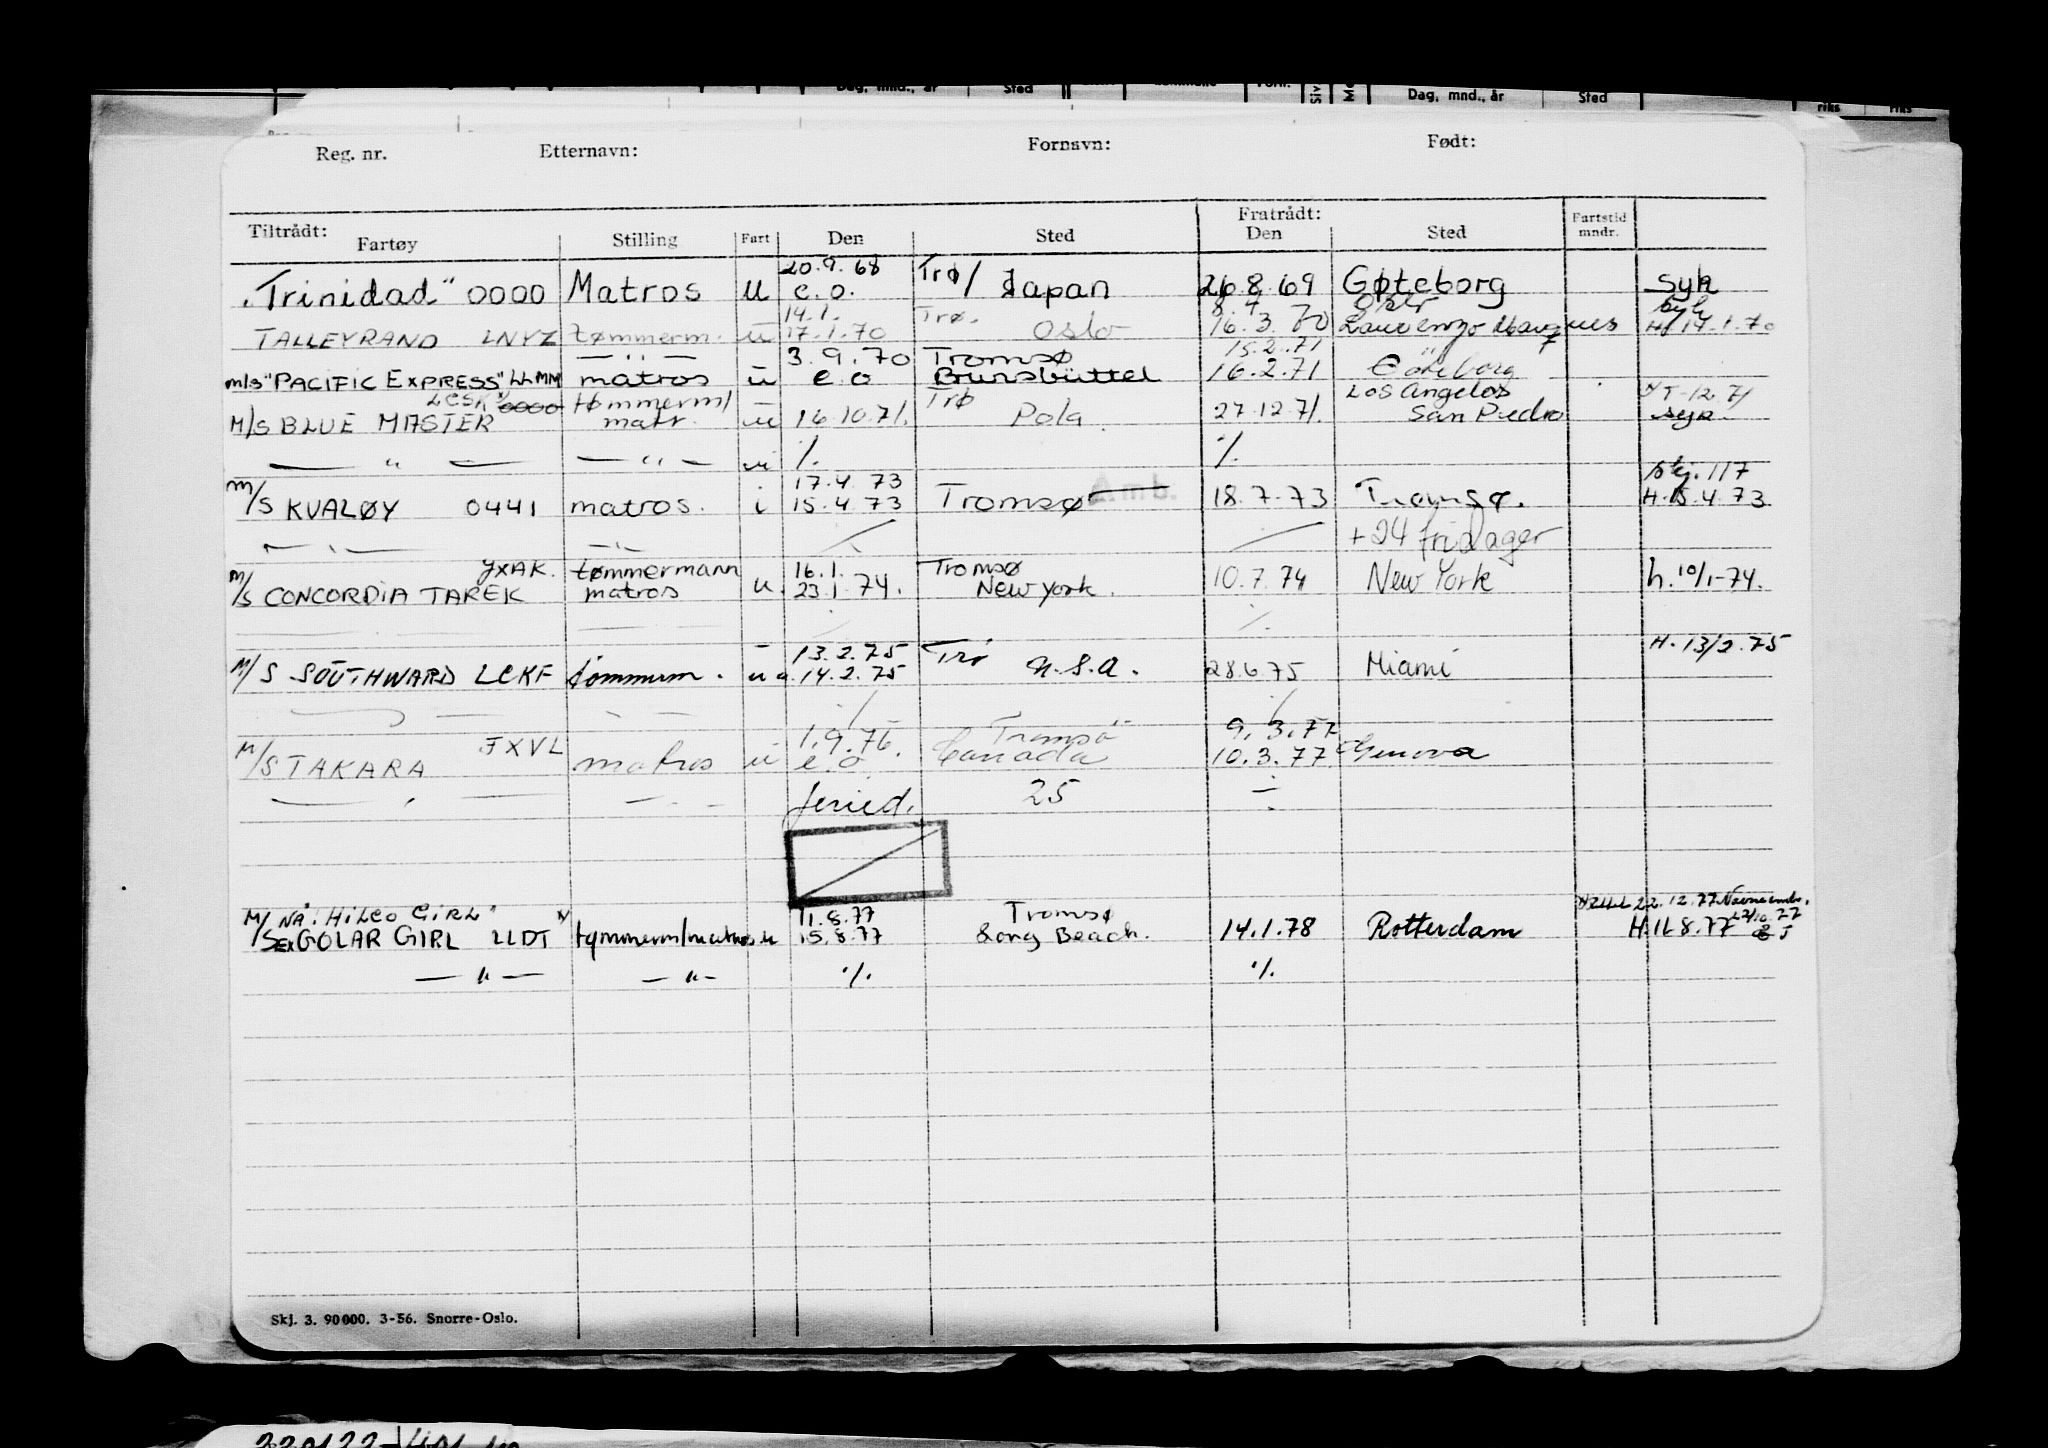 Dag, mnd., år Sted Dag, mnd., år Sted riks riks
Reg. nr. Etternavn: Fornavn: Født:
Tiltrådt: Fratrådt:
Fartøy Stilling Fart Den Sted Den Sted Fartstid mndr.
20.9.68 Trø/
"Trinidad" 0000 Matros u e.o. Japan 26.8.69 Gøteborg syk
14.1. Trø. 8.4.70 syk
TALLEYRAND LNYZ tømmerm. u 17.1.70 Oslo 16.3.70 Laurenzo Marques H 14.1.70
— " — 3.9.70 Tromsø 15.2.71 "
m/s "PACIFIC EXPRESS" LLMM matros u e.o Brunsbüttel 16.2.71 Göteborg
LCSK 0000 tømmerm/ Trø Los Angelos
M/S BLUE MASTER matr. u 16.10.71. Pola 27.12.71. San Pedro syk
— " — — " — u ./. ./.
17.4.73 skj. 117
m/s KVALØY 0441 matros. i 15.4.73 Tromsø Amb. 18.7.73 Tromsø. H.15.4.73
— " — — " — +24 fridager
JXAK. tømmermann 16.1. Tromsø
m/s CONCORDIA TAREK matros u. 23.1.74. New York. 10.7.74 New York h.10/1-74.
./. ./.
13.2.75 Trø H.13/2.75
M/S SOUTHWARD LCKF tömmerm. u 14.2.75 U.S.A. 28.6.75 Miami
./. ./.
JXVL 1.9.76. Tromsö 9.3.77
M/S TAKARA matros u e.o. Canada 10.3.77 Genova
— " — — " — feried. 25 ÷
M/ NÅ "HILCO GIRL" 11.8.77 Tromsø 22.12.77
S ex GOLAR GIRL LLDT tømmerm/matros u 15.8.77 Long Beach. 14.1.78 Rotterdam H.11.8.77
— " — — " — ./. ./.
Skj. 3. 90000. 3-56. Snorre-Oslo.